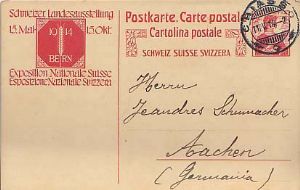 Schweizer. Landesausstellung
15. Mai 15. Okt.
1914
BERN
Exposition Nationale Suisse
Esposizione Nazionale Svizzera
Postkarte. Carte postale
Cartolina postale
SCHWEIZ SUISSE SVIZZERA
CHIASSO
Herrn
Jeandres Schumacher
Aachen
(Germania)